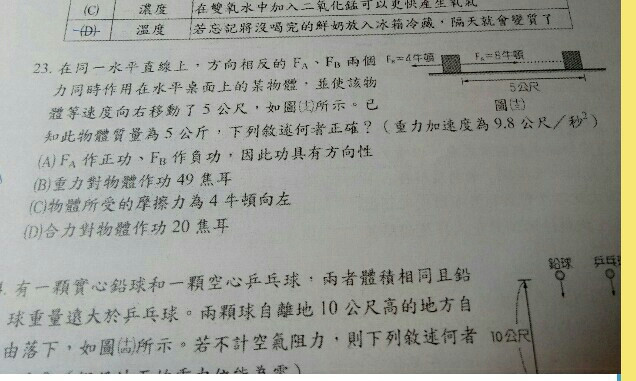 (C) 濃度 在雙氧水中加入二氧化錳可以更快產生氧氣
(D) 溫度 若忘記將沒喝完的鮮奶放入冰箱冷藏，隔天就會變質了
23. 在同一水平直線上，方向相反的 FA、FB 兩個
力同時作用在水平桌面上的某物體，並使該物
體等速度向右移動了 5 公尺，如圖(圭)所示。已
知此物體質量為 5 公斤，下列敘述何者正確？（重力加速度為 9.8 公尺／秒²）
=4牛頓
=8牛頓
5公尺
(A) FA 作正功、FB 作負功，因此功具有方向性
(B)重力對物體作功 49 焦耳
(C)物體所受的摩擦力為 4 牛頓向左
(D)合力對物體作功 20 焦耳
有一顆實心鉛球和一顆空心乒乓球，兩者體積相同且鉛
球重量遠大於乒乓球。兩顆球自離地 10 公尺高的地方自
由落下，如圖所示。若不計空氣阻力，則下列敘述何者
鉛球
乒乓
10公尺